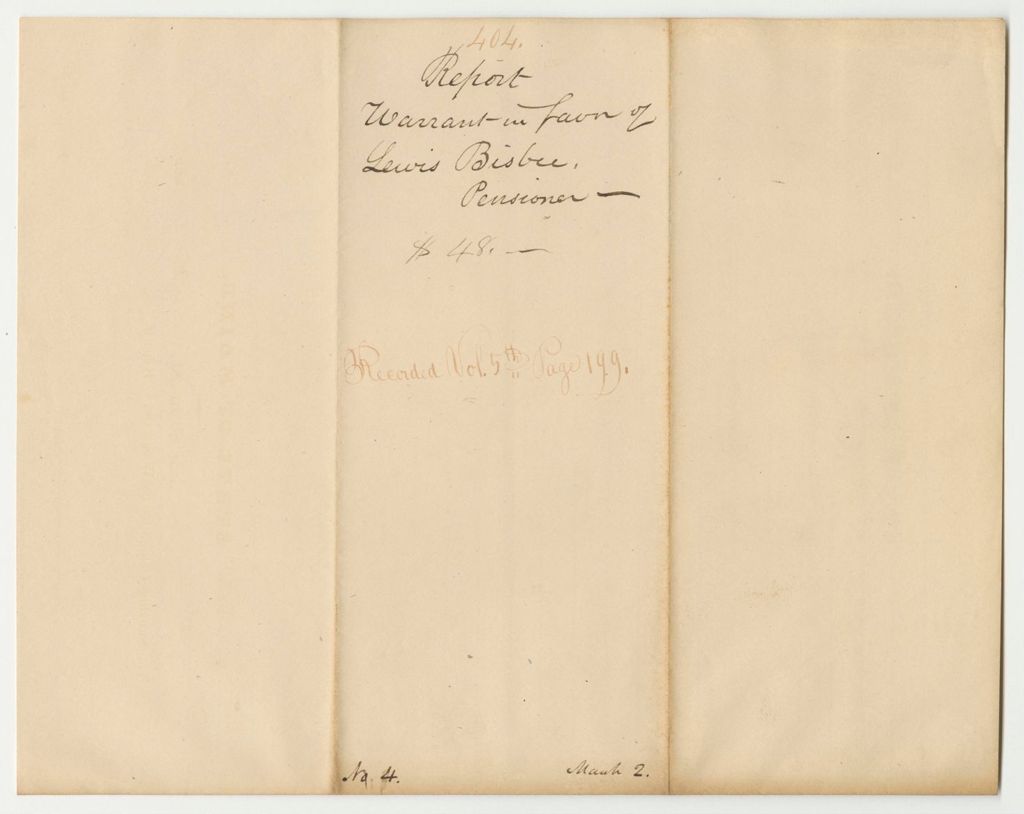 404.
Report
Warrant in favor of
Lewis Bisbee.
Pensioner —
$ 48. —
Recorded Vol. 5th Page 199.
No. 4.
March 2.